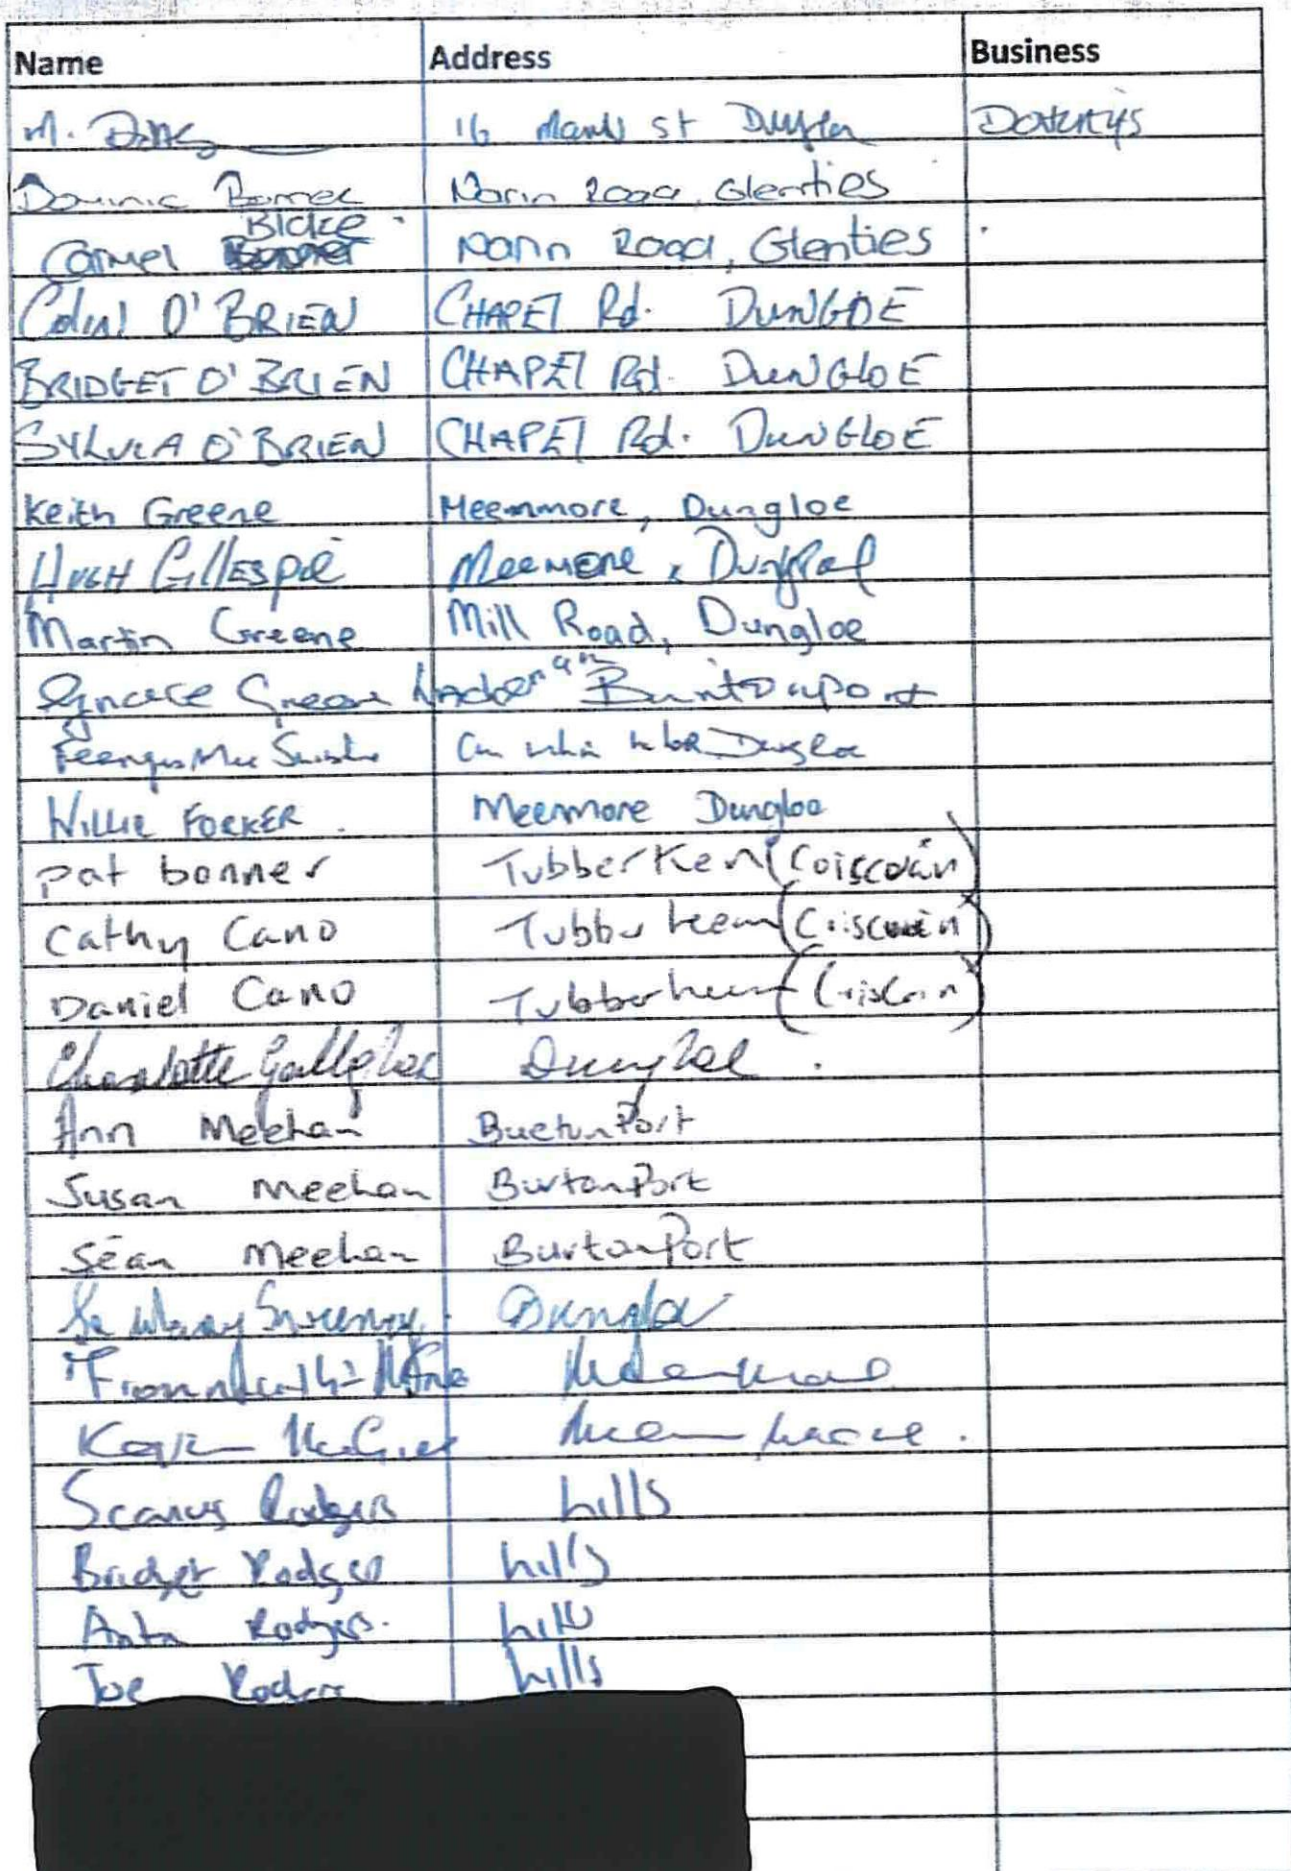 Name Address Business
M. 16 Main St Dungloe Doherty's
Dominic Bonner Narin Road, Glenties
Carmel Blake Narin Road, Glenties
Colm O'BRIEN CHAPEL Rd. DUNGLOE
BRIDGET O'BRIEN CHAPEL Rd. DUNGLOE
SYLVIA O'BRIEN CHAPEL Rd. DUNGLOE
Keith Greene Meenmore, Dungloe
HUGH GILLESPIE Meenmore, Dungloe
Martin Greene Mill Road, Dungloe
Greene Burtonport
Dungloe
Willie FORKER Meenmore Dungloe
Pat bonner Tubberkeen (Coiscéán)
Cathy Cano Tubberkeen
Daniel Cano Tubberkeen
Charlotte Gallagher Dungloe.
Ann Meehan BurtonPort
Susan Meehan BurtonPort
Séan Meehan BurtonPort
Sweeney. Dungloe
Meenmore
Meenmore.
Seamus Rodgers hills
Bridget Rodgers hills
Rodgers. hills
Joe Rodgers hills